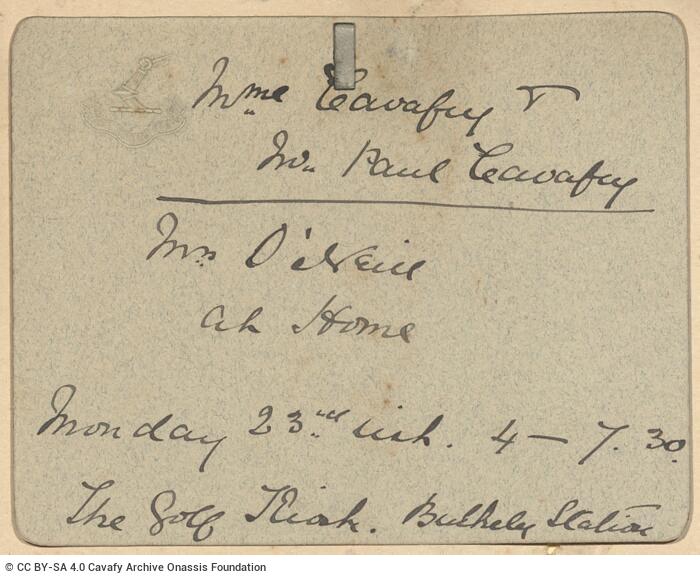 Mme Cavafy &
Mr. Paul Cavafy
Mrs O'Neill
at Home
Monday 23rd inst. 4 – 7.30.
The Golf Kiosk. Bulkeley Station
© CC BY-SA 4.0 Cavafy Archive Onassis Foundation